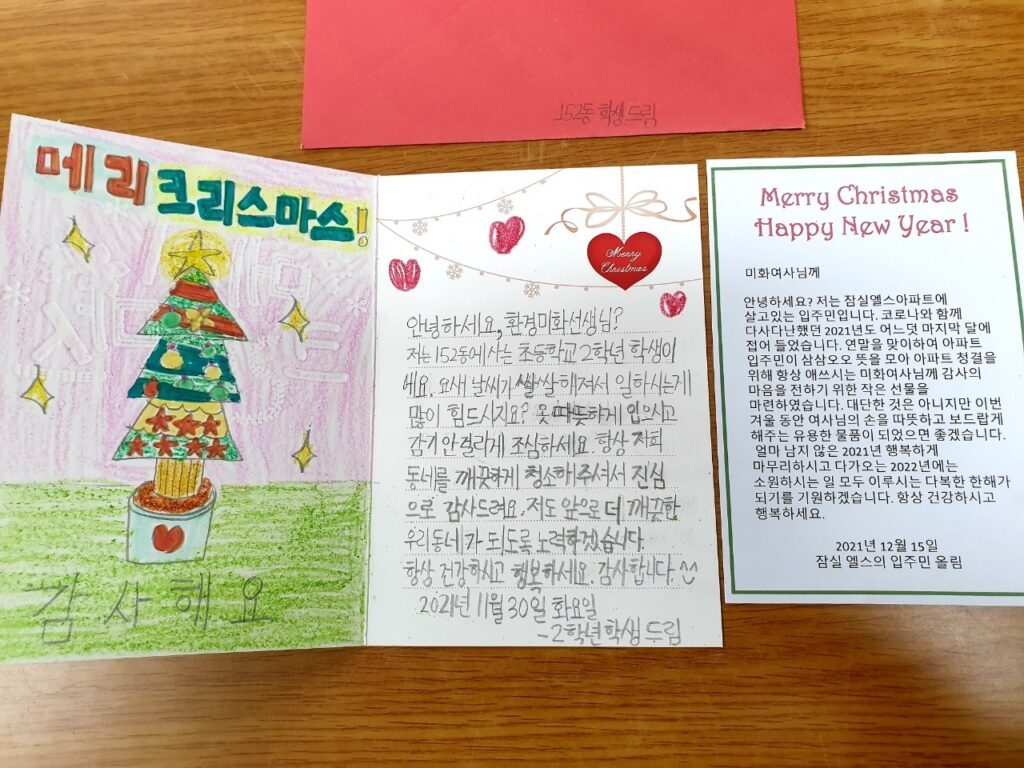 152동 학생드림
메리 크리스마스!
감사해요
Merry
Christmas
안녕하세요, 환경미화선생님?
저는 152동에 사는 초등학교 2학년 학생이
에요. 요새 날씨가 쌀쌀해져서 일하시는게
많이 힘드시지요? 옷 따뜻하게 입으시고
감기 안 걸리게 조심하세요. 항상 저희
동네를 깨끗하게 청소해 주셔서 진심
으로 감사드려요. 저도 앞으로 더 깨끗한
우리동네가 되도록 노력하겠습니다.
항상 건강하시고 행복하세요. 감사합니다. ^^
2021년 11월 30일 화요일
-2학년학생 드림
Merry Christmas
Happy New Year !
미화여사님께
안녕하세요? 저는 잠실엘스아파트에
살고있는 입주민입니다. 코로나와 함께
다사다난했던 2021년도 어느덧 마지막 달에
접어 들었습니다. 연말을 맞이하여 아파트
입주민이 삼삼오오 뜻을 모아 아파트 청결을
위해 항상 애쓰시는 미화여사님께 감사의
마음을 전하기 위한 작은 선물을
마련하였습니다. 대단한 것은 아니지만 이번
겨울 동안 여사님의 손을 따뜻하고 보드랍게
해주는 유용한 물품이 되었으면 좋겠습니다.
얼마 남지 않은 2021년 행복하게
마무리하시고 다가오는 2022년에는
소원하시는 일 모두 이루시는 다복한 한해가
되기를 기원하겠습니다. 항상 건강하시고
행복하세요.
2021년 12월 15일
잠실 엘스의 입주민 올림